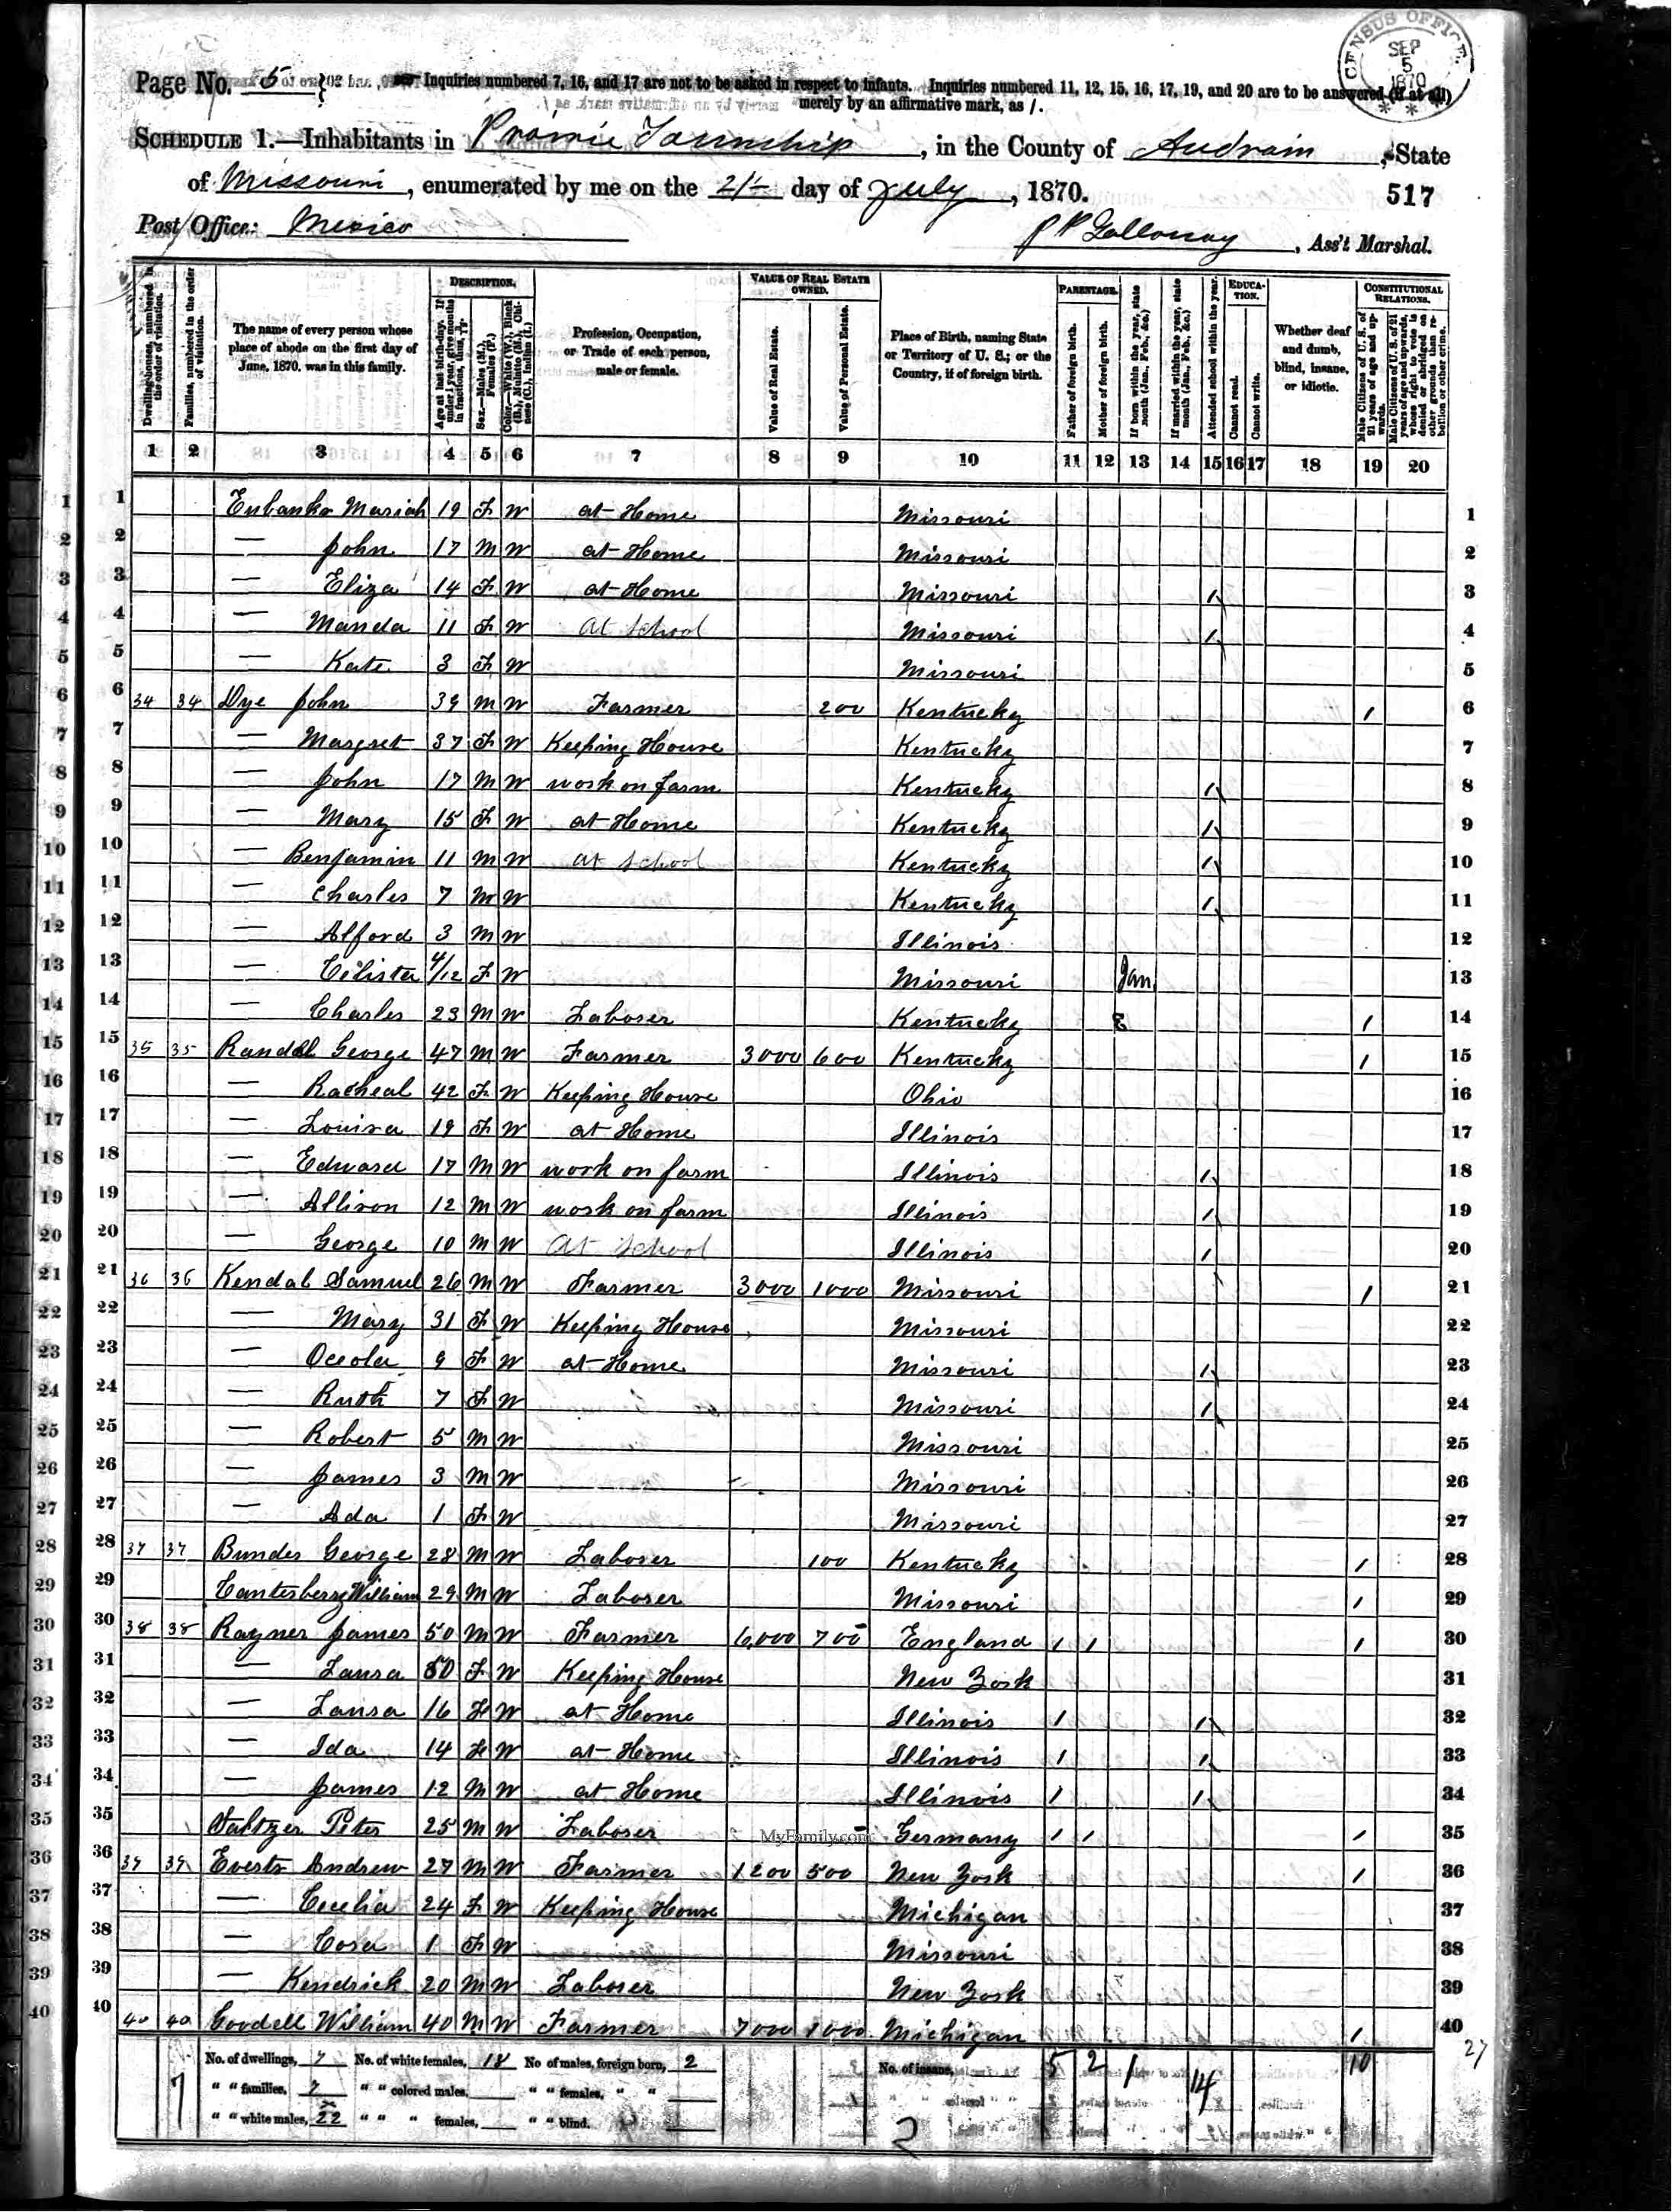 CENSUS OFFICE
SEP
5
1870
Page No. 5 Inquiries numbered 7, 16, and 17 are not to be asked in respect to infants. Inquiries numbered 11, 12, 15, 16, 17, 19, and 20 are to be answered (if at all)
merely by an affirmative mark, as /.
SCHEDULE 1.—Inhabitants in Prairie Township, in the County of Audrain, State
of Missouri, enumerated by me on the 21 day of July, 1870. 517
Post Office: Mexico
Galloway, Ass't Marshal.
Dwelling-houses, numbered in the order of visitation.
Families, numbered in the order of visitation.
The name of every person whose place of abode on the first day of June, 1870, was in this family.
DESCRIPTION.
Age at last birth-day. If under 1 year, give months in fractions, thus, 3/12.
Sex.—Males (M.), Females (F.)
Color.—White (W.), Black (B.), Mulatto (M.), Chinese (C.), Indian (I.)
Profession, Occupation, or Trade of each person, male or female.
VALUE OF REAL ESTATE OWNED.
Value of Real Estate.
Value of Personal Estate.
Place of Birth, naming State or Territory of U. S.; or the Country, if of foreign birth.
PARENTAGE.
Father of foreign birth.
Mother of foreign birth.
If born within the year, state month (Jan., Feb., &c.)
If married within the year, state month (Jan., Feb., &c.)
Attended school within the year.
EDUCATION.
Cannot read.
Cannot write.
Whether deaf and dumb, blind, insane, or idiotic.
CONSTITUTIONAL RELATIONS.
Male Citizens of U. S. of 21 years of age and upwards.
Male Citizens of U. S. of 21 years of age and upwards whose right to vote is denied or abridged on other grounds than rebellion or other crime.
1 2 3 4 5 6 7 8 9 10 11 12 13 14 15 16 17 18 19 20
1 1 Eubanks Mariah 19 F W at Home Missouri 1
2 2 — John 17 M W at Home Missouri 2
3 3 — Eliza 14 F W at Home Missouri / 3
4 4 — Manda 11 F W At School Missouri / 4
5 5 — Kate 3 F W Missouri 5
6 6 34 34 Dye John 39 M W Farmer 200 Kentucky / 6
7 7 — Margret 37 F W Keeping House Kentucky 7
8 8 — John 17 M W work on farm Kentucky / 8
9 9 — Mary 15 F W at Home Kentucky / 9
10 10 — Benjamin 11 M W at School Kentucky / 10
11 11 — Charles 7 M W Kentucky / 11
12 12 — Alford 3 M W Illinois 12
13 13 — Celister 4/12 F W Missouri Jan. 13
14 14 — Charles 23 M W Laborer Kentucky / 14
15 15 35 35 Randal George 47 M W Farmer 3000 600 Kentucky / 15
16 16 — Racheal 42 F W Keeping House Ohio 16
17 17 — Louisa 19 F W at Home Illinois 17
18 18 — Edward 17 M W work on farm Illinois / 18
19 19 — Allison 12 M W work on farm Illinois / 19
20 20 — George 10 M W At School Illinois / 20
21 21 36 36 Kendal Samuel 26 M W Farmer 3000 1000 Missouri / 21
22 22 — Mary 31 F W Keeping House Missouri 22
23 23 — Oceola 9 F W at Home Missouri / 23
24 24 — Ruth 7 F W Missouri / 24
25 25 — Robert 5 M W Missouri 25
26 26 — James 3 M W Missouri 26
27 27 — Ada 1 F W Missouri 27
28 28 37 37 Bundes George 28 M W Laborer 100 Kentucky / 28
29 29 Canterberry William 29 M W Laborer Missouri / 29
30 30 38 38 Rayner James 50 M W Farmer 6000 700 England / / / 30
31 31 — Laura 50 F W Keeping House New York 31
32 32 — Laura 16 F W at Home Illinois / / 32
33 33 — Ida 14 F W at Home Illinois / / 33
34 34 — James 12 M W at Home Illinois / / 34
35 35 Saltzer Peter 25 M W Laborer MyFamily.com Germany / / / 35
36 36 39 39 Everts Andrew 27 M W Farmer 1200 500 New York / 36
37 37 — Cecelia 24 F W Keeping House Michigan 37
38 38 — Cora 1 F W Missouri 38
39 39 — Kendrick 20 M W Laborer New York 39
40 40 40 40 Goodell William 40 M W Farmer 7000 1000 Michigan / 40
27
No. of dwellings, 7 No. of white females, 18 No of males, foreign born, 2 No. of insane, 5 2 1 14 10
" " families, 7 " " colored males, " " females, " "
" " white males, 22 " " " females, " " blind,
7
2